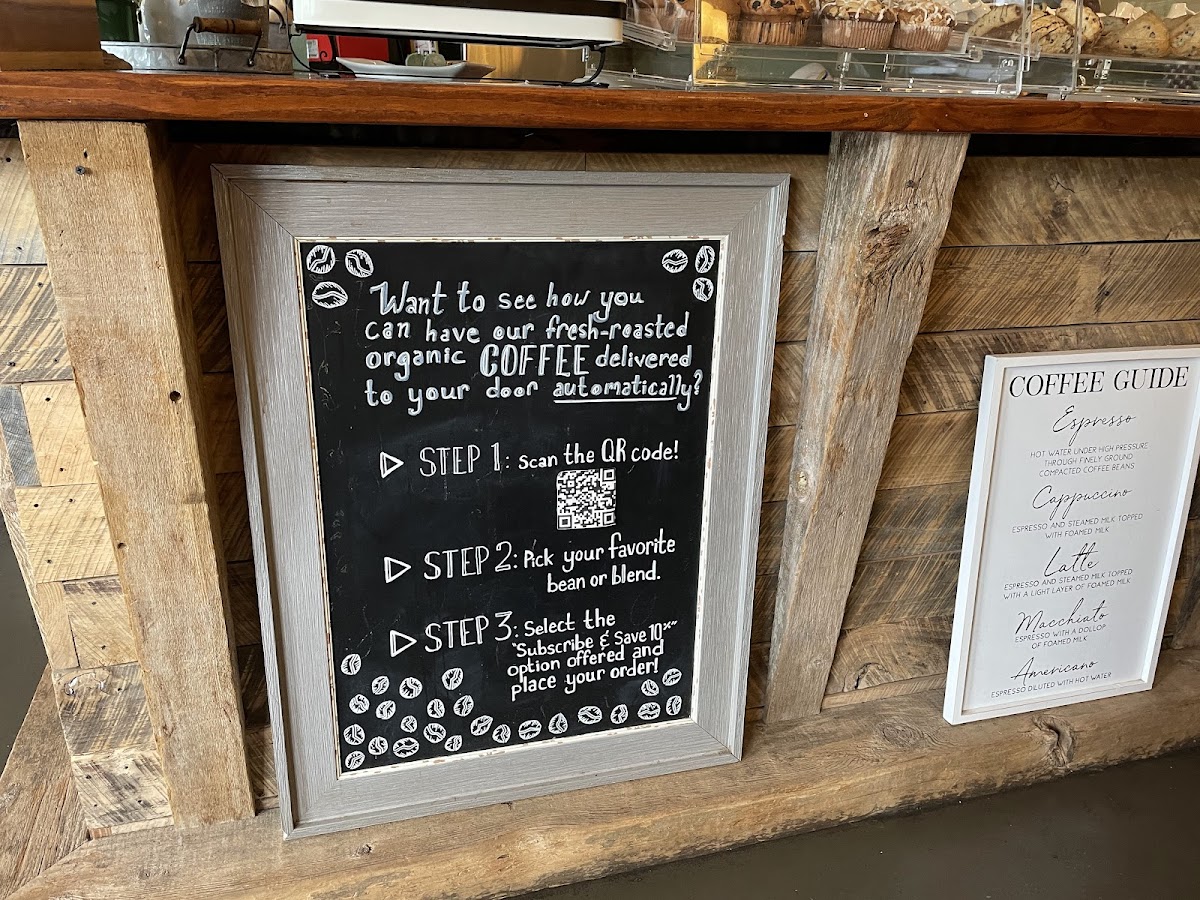 Want to see how you
can have our fresh-roasted
organic COFFEE delivered
to your door automatically?
STEP 1: Scan the QR code!
STEP 2: Pick your favorite
bean or blend.
STEP 3: Select the
"Subscribe & Save 10%"
option offered and
place your order!
COFFEE GUIDE
Espresso
HOT WATER UNDER HIGH PRESSURE
THROUGH FINELY GROUND
COMPACTED COFFEE BEANS
Cappuccino
ESPRESSO AND STEAMED MILK TOPPED
WITH FOAMED MILK
Latte
ESPRESSO AND STEAMED MILK TOPPED
WITH A LIGHT LAYER OF FOAMED MILK
Macchiato
ESPRESSO WITH A DOLLOP
OF FOAMED MILK
Americano
ESPRESSO DILUTED WITH HOT WATER